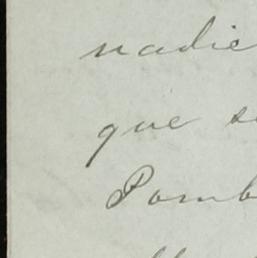 nadie
que s
Pomb